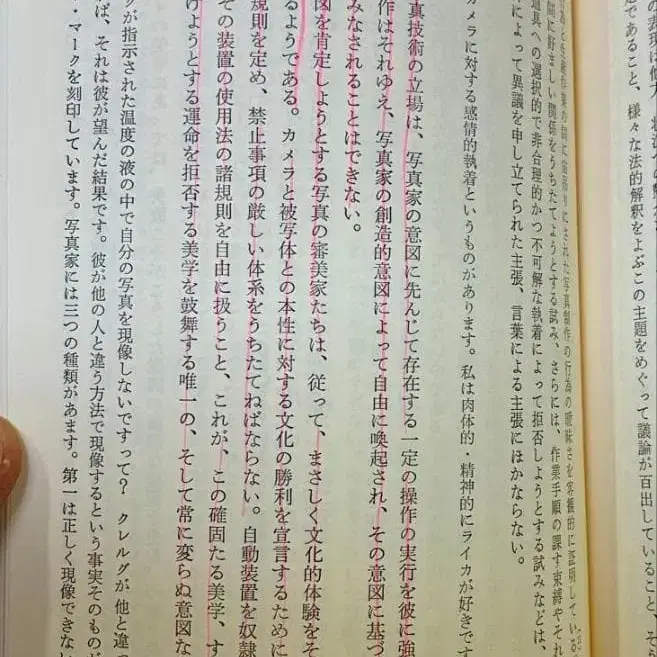 の表現は
であること、様々な法的解釈をよぶこの主題をめぐって議論が百出していること、そ
にされた写真制作の行為の曖昧さを客観的に証明している
間に好ましい関係をうちたてようとする試み、さらには、作業手順の課す束縛やそれ
道具への選択的で非合理的かつ不可解な執着によって拒否しようとする試みなどは、
によって異議を申し立てられた主張、言葉による主張にほかならない。
カメラに対する感情的執着というものがあります。私は肉体的・精神的にライカが好きです
真技術の立場は、写真家の意図に先んじて存在する一定の操作の実行を彼に強
作はそれゆえ、写真家の創造的意図によって自由に喚起され、その意図に基づ
みなされることはできない。
図を肯定しようとする写真の審美家たちは、従って、まさしく文化的体験をそ
るようである。カメラと被写体との本性に対する文化の勝利を宣言するために
規則を定め、禁止事項の厳しい体系をうちたてねばならない。自動装置を奴隷
その装置の使用法の諸規則を自由に扱うこと、これが、この確固たる美学、す
けようとする運命を拒否する美学を鼓舞する唯一の、そして常に変らぬ意図な
グが指示された温度の液の中で自分の写真を現像しないですって? クレルグが他と違っ
ば、それは彼が望んだ結果です。彼が他の人と違う方法で現像するという事実そのものが
・マークを刻印しています。写真家には三つの種類があます。第一は正しく現像できない